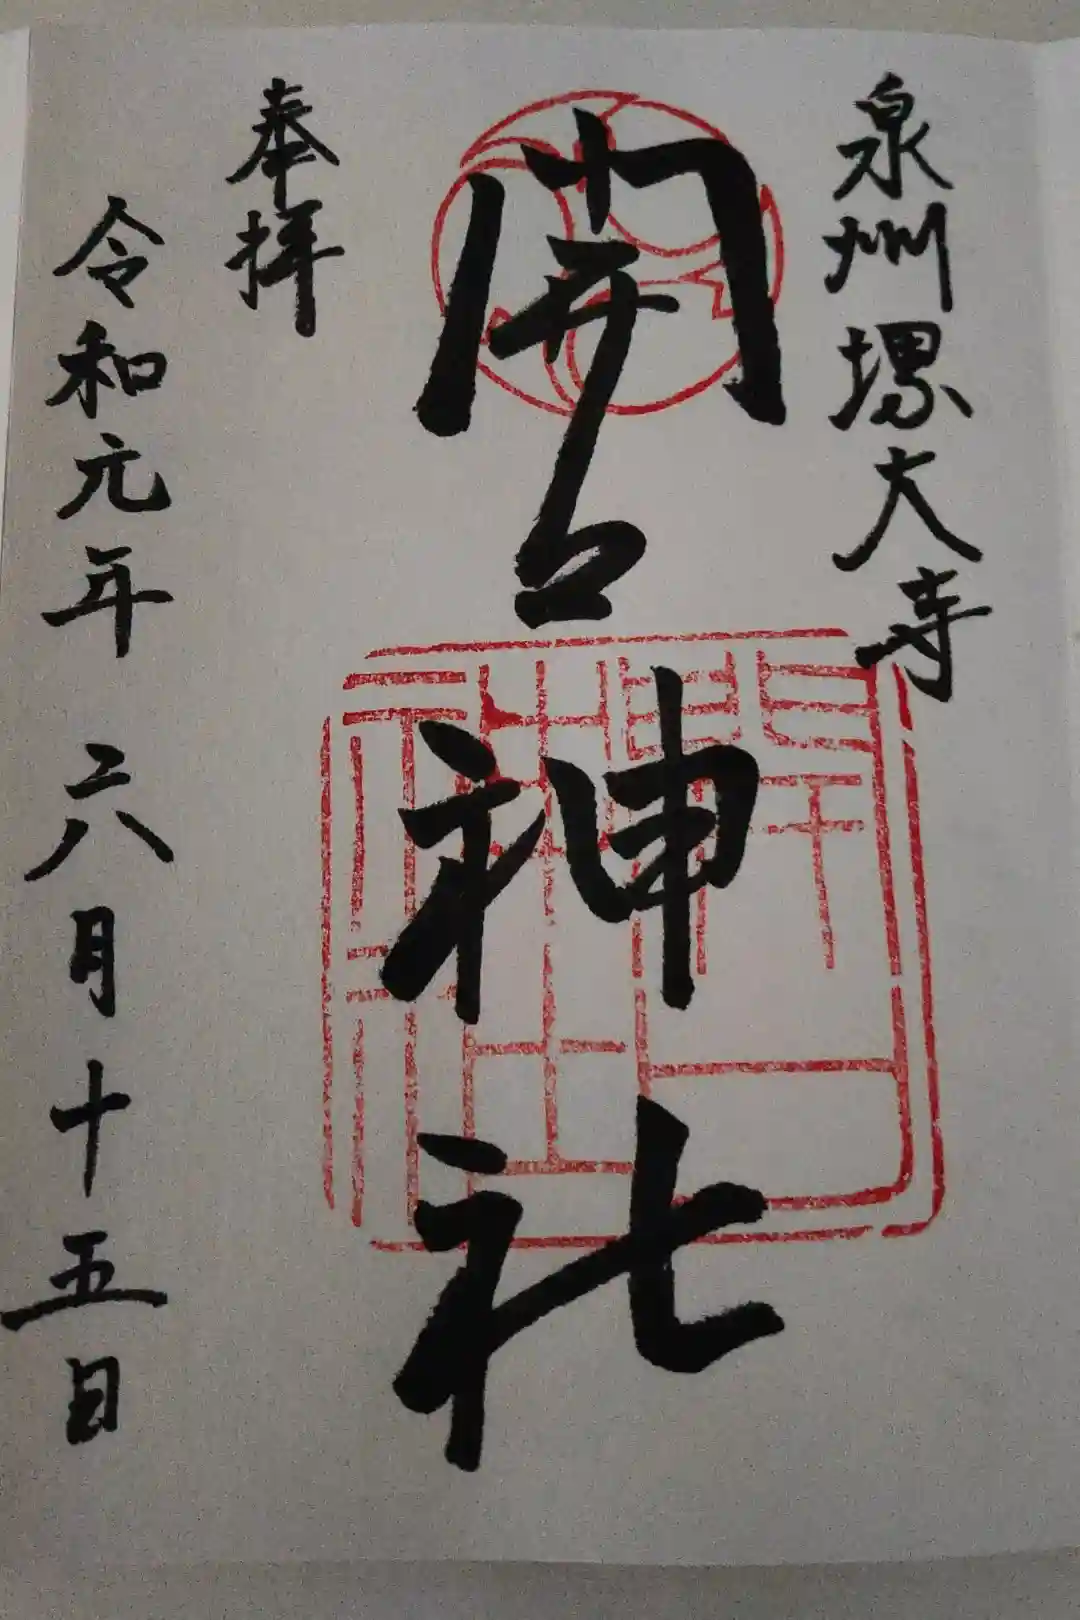 泉州堺大寺
開口神社
奉拝
令和元年六月十五日